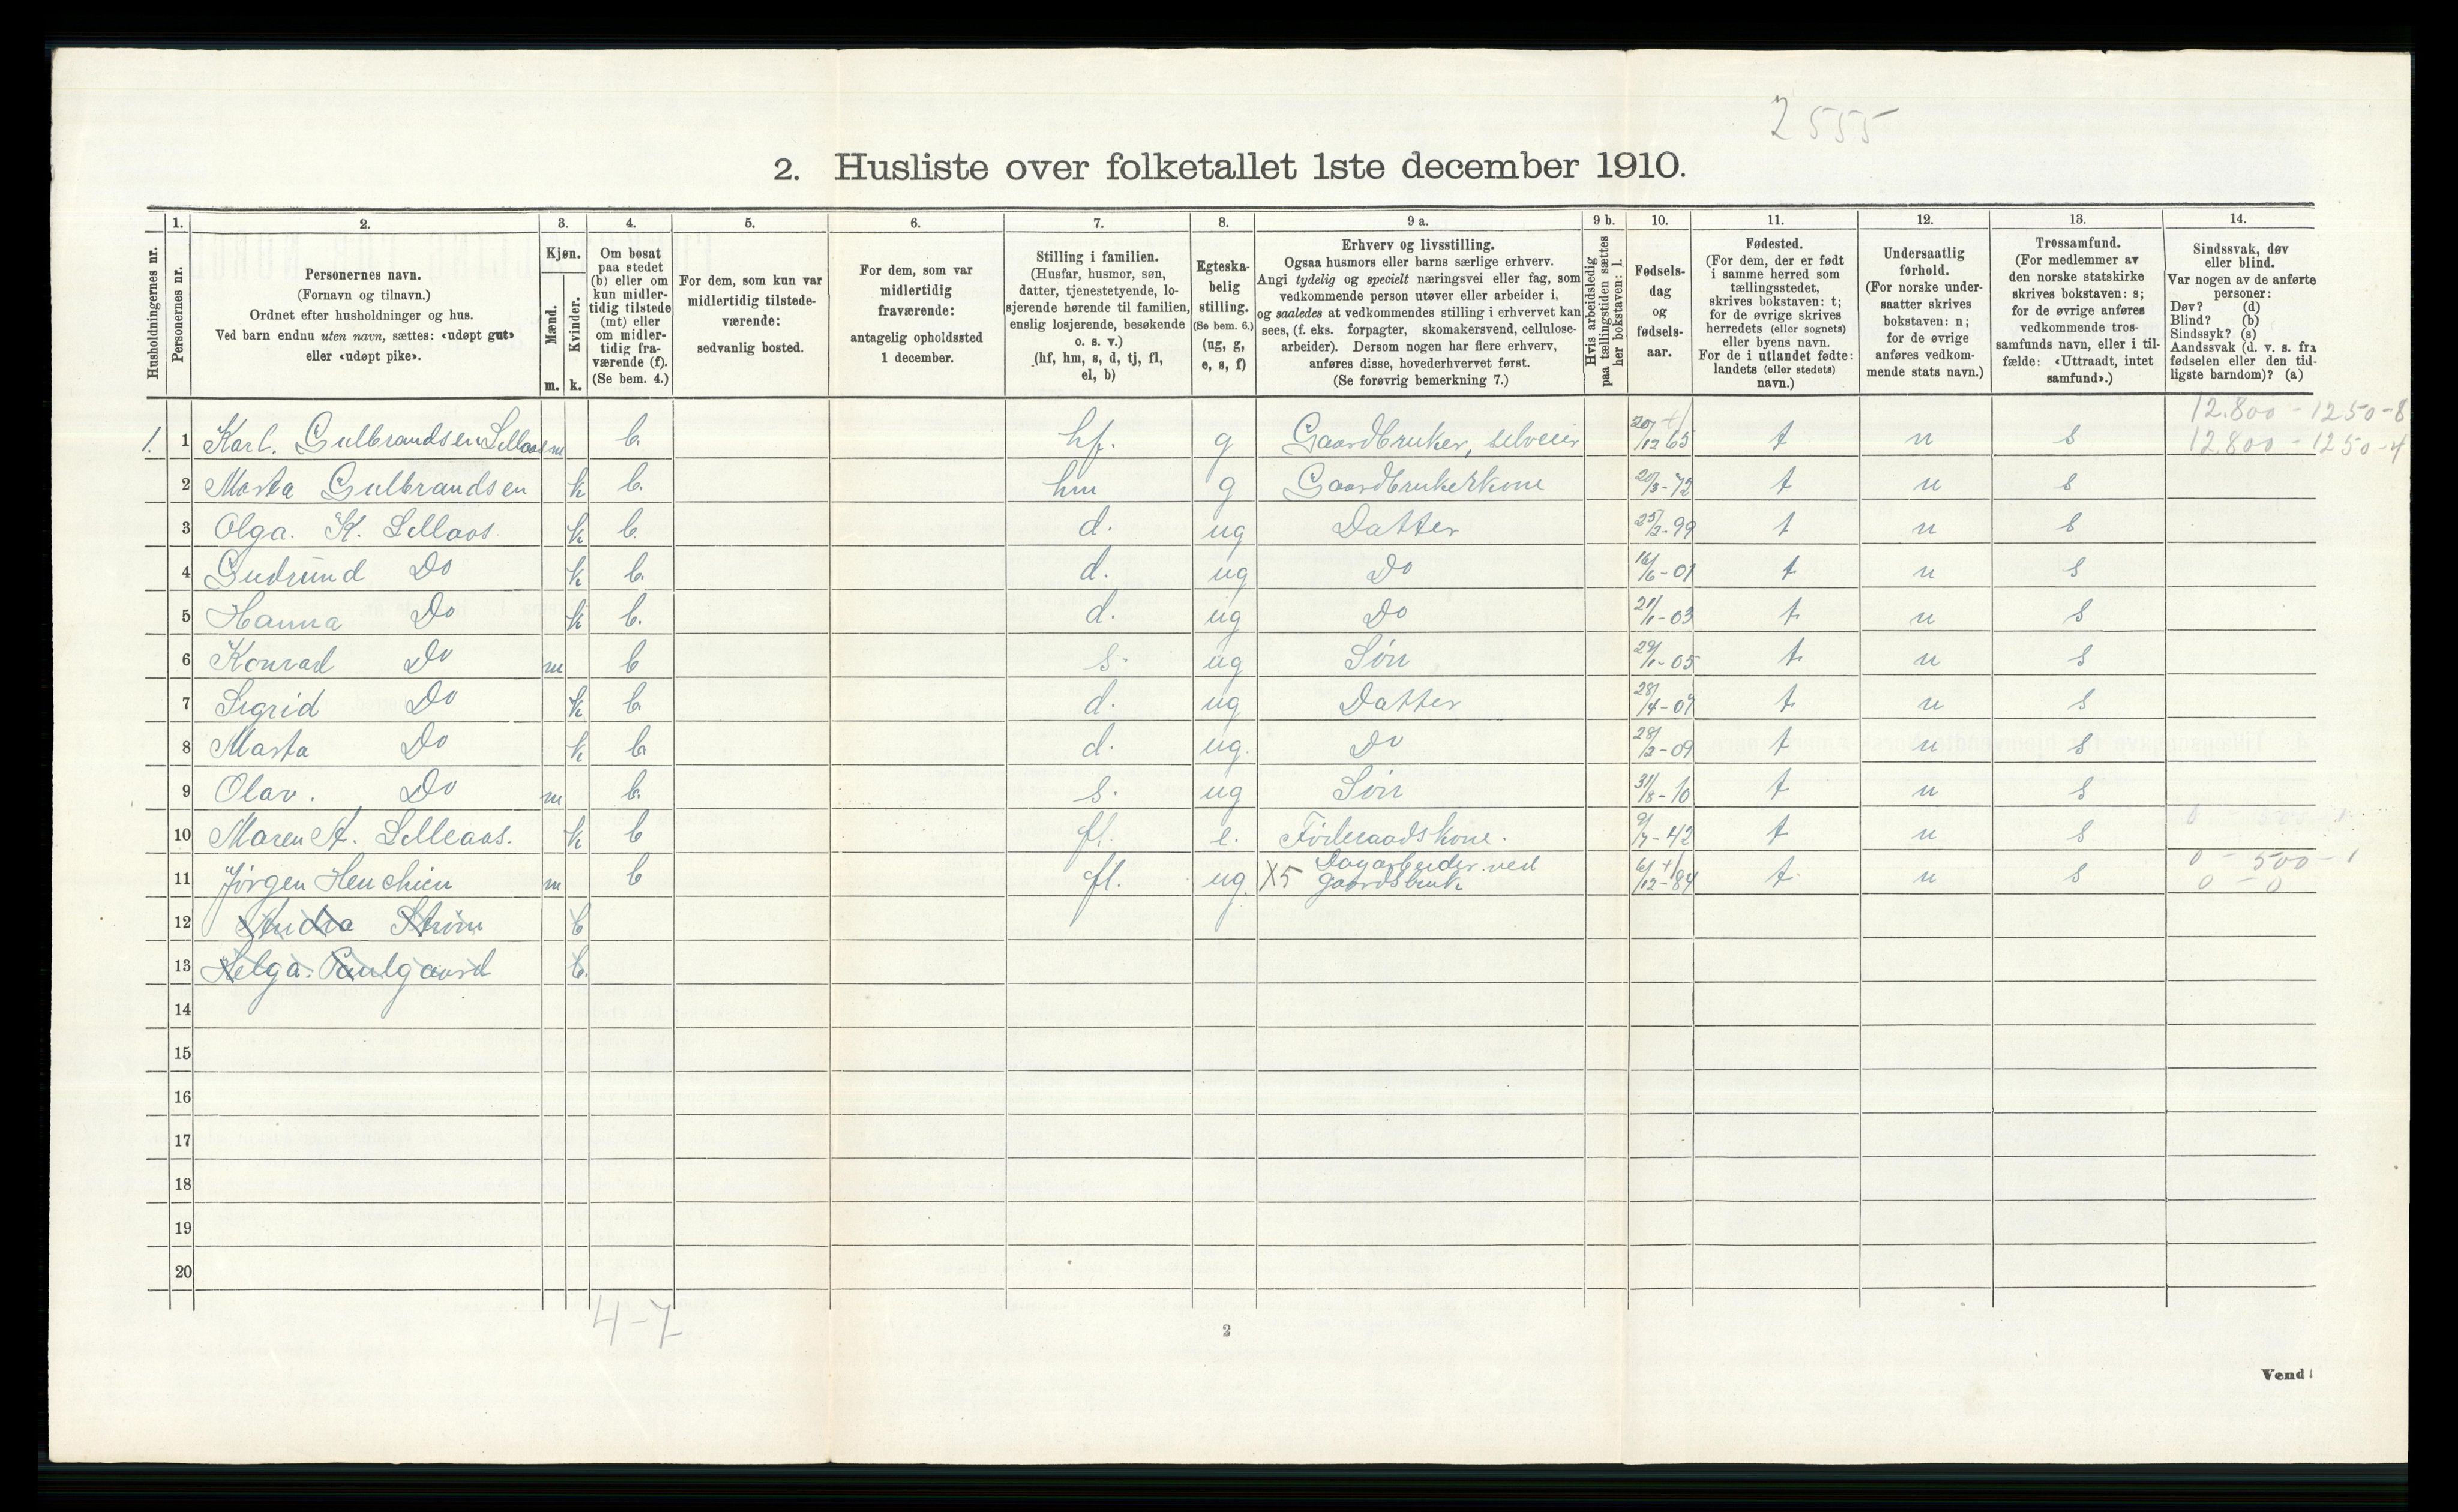 2555
2. Husliste over folketallet 1ste december 1910.
Husholdningernes nr.
1.
Personernes nr.
2.
Personernes navn.
(Fornavn og tilnavn.)
Ordnet efter husholdninger og hus.
Ved barn endnu uten navn, sættes: «udøpt gut»
eller «udøpt pike».
3.
Kjøn.
Mænd.
Kvinder.
m. k.
4.
Om bosat
paa stedet
(b) eller om
kun midler-
tidig tilstede
(mt) eller
om midler-
tidig fra-
værende (f).
(Se bem. 4.)
5.
For dem, som kun var
midlertidig tilstede-
værende:
sedvanlig bosted.
6.
For dem, som var
midlertidig
fraværende:
antagelig opholdssted
1 december.
7.
Stilling i familien.
(Husfar, husmor, søn,
datter, tjenestetyende, lo-
sjerende hørende til familien,
enslig losjerende, besøkende
o. s. v.)
(hf, hm, s, d, tj, fl,
el, b)
8.
Egteska-
belig
stilling.
(Se bem. 6.)
(ug, g,
e, s, f)
9 a.
Erhverv og livsstilling.
Ogsaa husmors eller barns særlige erhverv.
Angi tydelig og specielt næringsvei eller fag, som
vedkommende person utøver eller arbeider i,
og saaledes at vedkommendes stilling i erhvervet kan
sees, (f. eks. forpagter, skomakersvend, cellulose-
arbeider). Dersom nogen har flere erhverv,
anføres disse, hovederhvervet først.
(Se forøvrig bemerkning 7.)
9 b.
Hvis arbeidsledig
paa tællingstiden sættes
her bokstaven: l.
10.
Fødsels-
dag
og
fødsels-
aar.
11.
Fødested.
(For dem, der er født
i samme herred som
tællingsstedet,
skrives bokstaven: t;
for de øvrige skrives
herredets (eller sognets)
eller byens navn.
For de i utlandet fødte:
landets (eller stedets)
navn.)
12.
Undersaatlig
forhold.
(For norske under-
saatter skrives
bokstaven: n;
for de øvrige
anføres vedkom-
mende stats navn.)
13.
Trossamfund.
(For medlemmer av
den norske statskirke
skrives bokstaven: s;
for de øvrige anføres
vedkommende tros-
samfunds navn, eller i til-
fælde: «Uttraadt, intet
samfund».)
14.
Sindssvak, døv
eller blind.
Var nogen av de anførte
personer:
Døv? (d)
Blind? (b)
Sindssyk? (s)
Aandssvak (d. v. s. fra
fødselen eller den tid-
ligste barndom)? (a)
12.800 - 1250 - 8
1. 1 Karl. Gulbrandsen Lilleaas m b. hf. g Gaardbruker, selveier 20/12 65 t n s 12.800 - 1250 - 4
2 Marta Gulbrandsen k b. hm g Gaardbrukerkone 20/3-72 t n s
3 Olga. K. Lilleaas k b. d. ug Datter 25/2-99 t n s
4 Gudrund Do k b. d. ug Do 16/6-01 t n s
5 Hanna Do k b. d. ug Do 21/1-03 t n s
6 Konrad Do m b s. ug Søn 29/1-05 t n s
7 Sigrid Do k b. d. ug Datter 28/4-07 t n s
8 Marta Do k b d. ug. Do 28/2-09 t n s
9 Olav. Do m b. s. ug Søn 31/8-10 t n s
10 Maren A. Lilleaas. k b fl. e. Føderaadskone. 9/7-42 t n s
11 Jørgen m b fl. ug. X5 Dagarbeider ved gaardsbruk 6/12-84 t n s 0 - 500 - 1
0 - 0
12 Strøm b
13 Helga. Paulgaard b.
14
15
16
17
18
19
20
4-7
2
Vend!